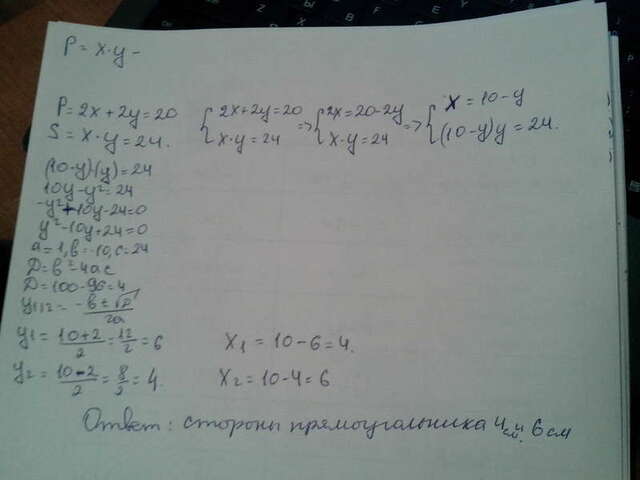 P = x·y -
P = 2x + 2y = 20
S = x·y = 24.
{2x+2y=20 => {2x=20-2y => {x = 10-y
{x·y = 24 {x·y = 24 {(10-y)y = 24.
(10-y)(y) = 24
10y-y²=24
-y²+10y-24=0
y²-10y+24=0
a=1, b=-10, c=24
D=b²-4ac
D=100-96=4
y1,2 = (-b±√D)/2a
y1 = (10+2)/2 = 12/2 = 6 x1 = 10-6 = 4.
y2 = (10-2)/2 = 8/2 = 4. x2 = 10-4 = 6
Ответ: стороны прямоугольника 4 см и 6 см